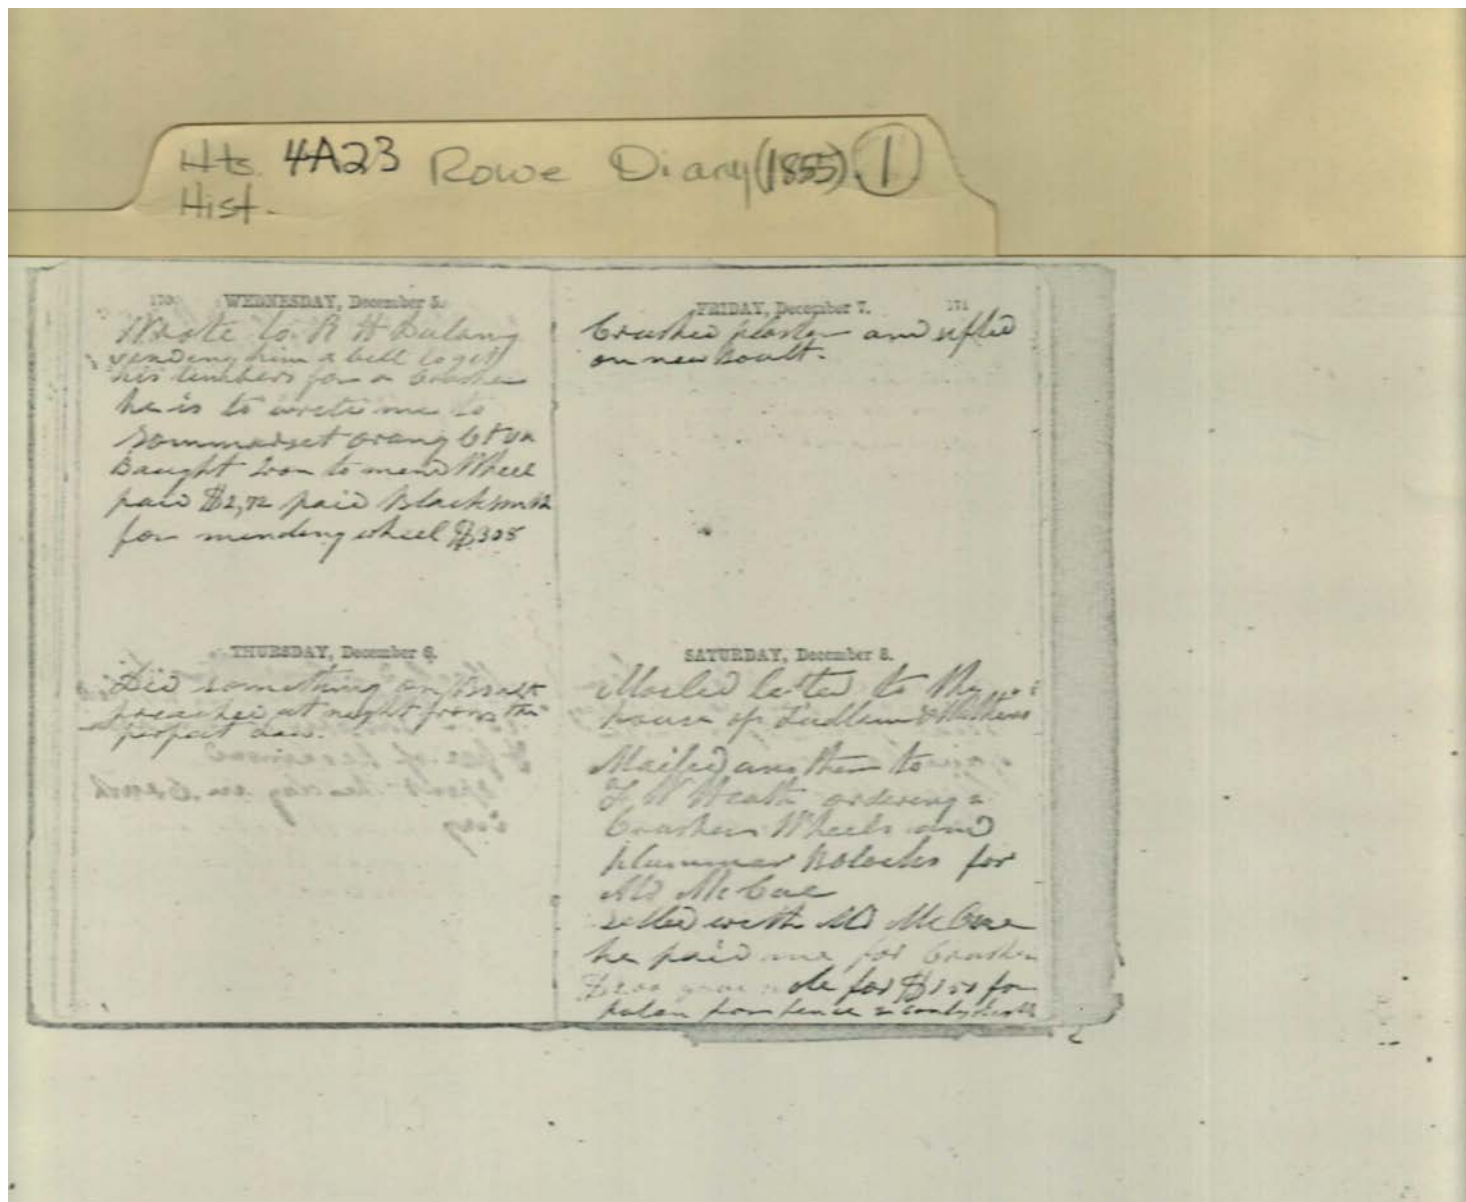 Hts. 4A23 Rowe Diary (1855) 1
Hist.
170 WEDNESDAY, December 5.
Wrote to R H Dulany
sending him a bill to git
his timbers for a Crusher
he is to write me to
Sommarset orang Ct va
Baught Iron to mend Wheel
paid $2,72 paid Blacksmith
for mending wheel $3 05
THURSDAY, December 6.
Did something on
preached at night from the
perfect law.
FRIDAY, December 7. 171
Crushed plaster and sifted
on new boalt.
SATURDAY, December 8.
Mailed letter to the
house of Ludlam &
Mailed another to
F W Heath ordering a
Crusher Wheels and
plummar Bolocks for
Mr McCue
setled with Mr McCue
he paid me for Crusher
$200 gave note for $150 for
paten for fence &